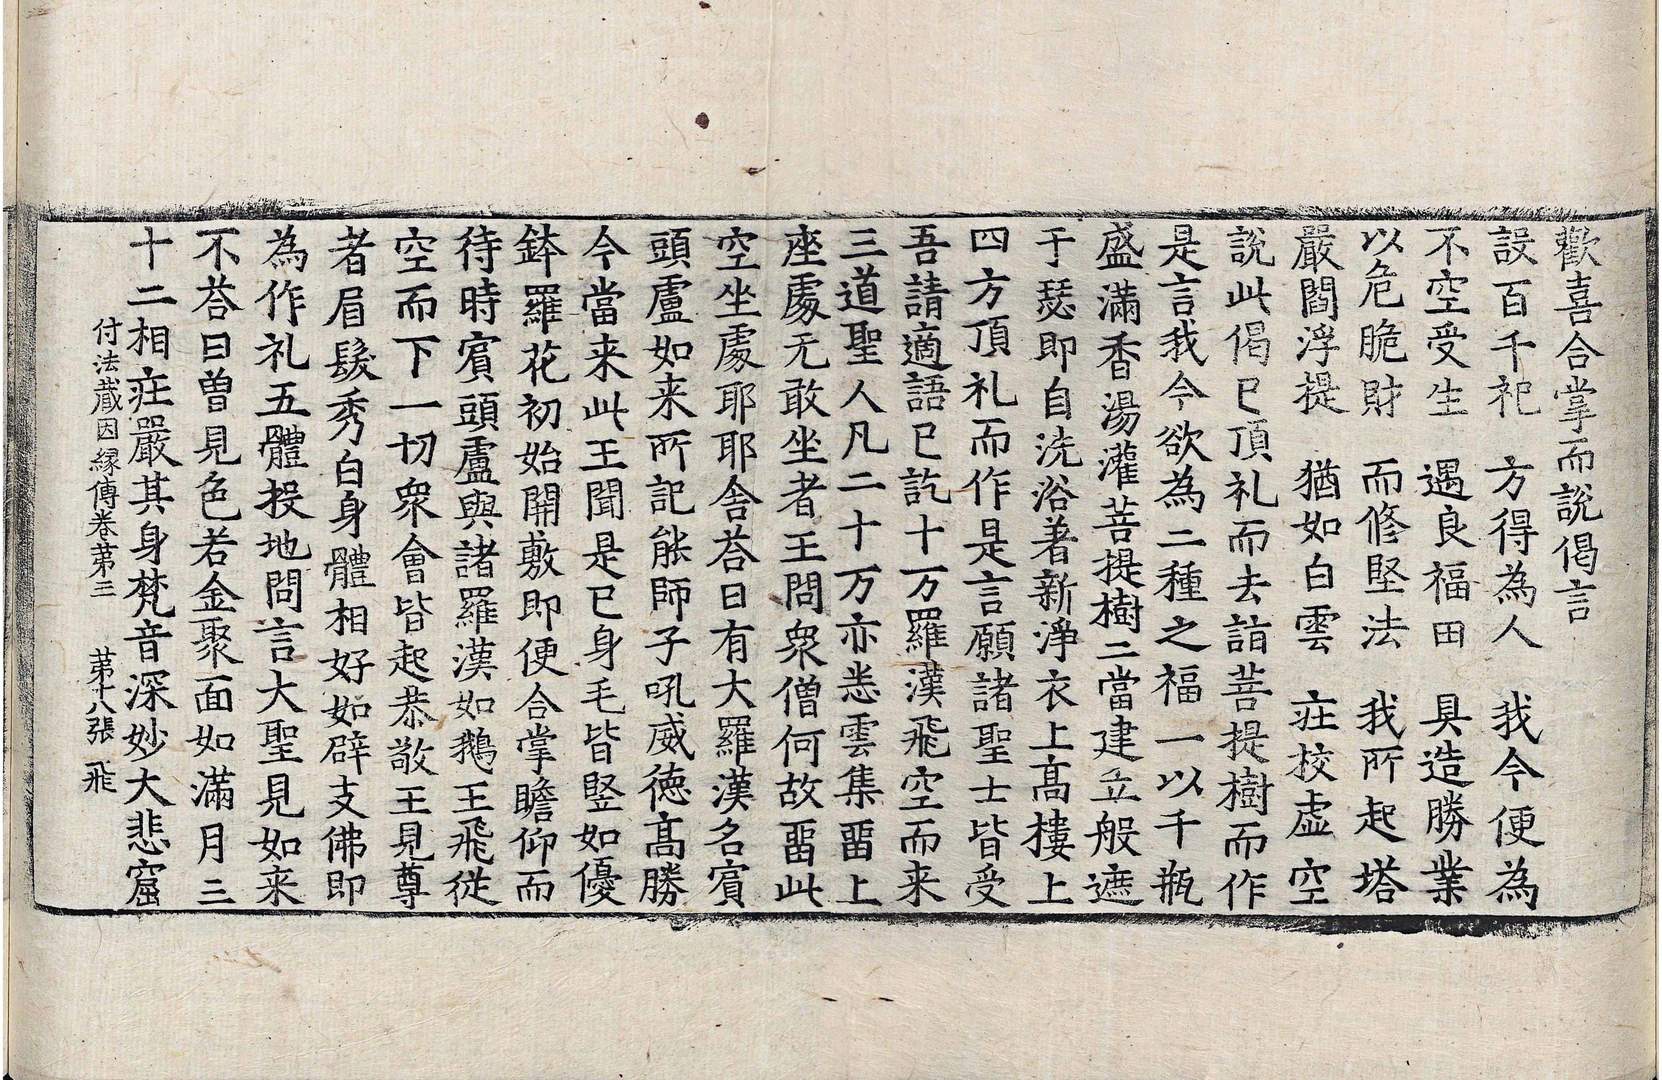 歡喜合掌而說偈言
設百千祀　方得為人　我今便為
不空受生　遇良福田　具造勝業
以危脆財　而修堅法　我所起塔
嚴閻浮提　猶如白雲　庄校虛空
說此偈已頂礼而去詣菩提樹而作
是言我今欲為二種之福一以千瓶
盛滿香湯灌菩提樹二當建立般遮
于瑟即自洗浴著新淨衣上高樓上
四方頂礼而作是言願諸聖士皆受
吾請適語已訖十万羅漢飛空而来
三道聖人凡二十万亦悉雲集畱上
座處无敢坐者王問衆僧何故畱此
空坐處耶耶舍荅曰有大羅漢名賓
頭盧如来所記能師子吼威德高勝
今當来此王聞是已身毛皆竪如優
鉢羅花初始開敷即便合掌瞻仰而
待時賓頭盧與諸羅漢如鵝王飛從
空而下一切衆會皆起恭敬王見尊
者眉髮秀白身體相好如辟支佛即
為作礼五體投地問言大聖見如来
不荅曰曽見色若金聚面如滿月三
十二相庄嚴其身梵音深妙大悲窟
付法藏因縁傳卷第三　第十八張　飛